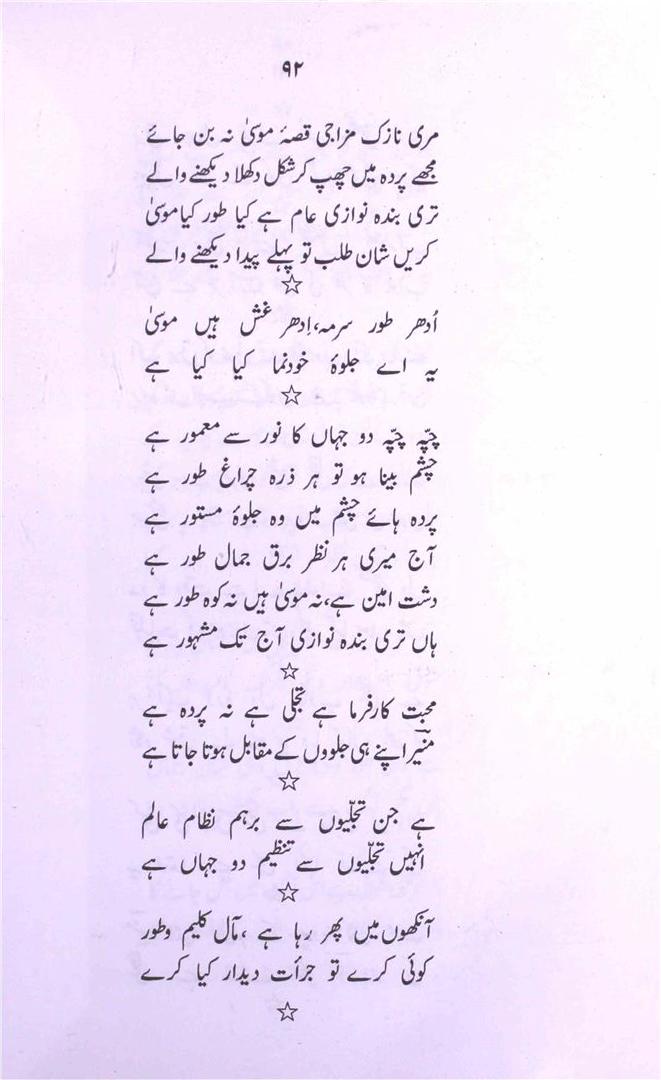 ۹۲
مری نازک مزاجی قصۂ موسیٰ نہ بن جائے
مجھے پردہ میں چھپ کر شکل دکھلا دیکھنے والے
تری بندہ نوازی عام ہے کیا طور کیا موسیٰ
کریں شان طلب تو پہلے پیدا دیکھنے والے
☆
اُدھر طور سرمہ،اِدھر غش ہیں موسیٰ
یہ اے جلوۂ خودنما کیا کیا ہے
☆
چپّہ چپّہ دو جہاں کا نور سے معمور ہے
چشم بینا ہو تو ہر ذرہ چراغ طور ہے
پردہ ہائے چشم میں وہ جلوۂ مستور ہے
آج میری ہر نظر برق جمال طور ہے
دشت امین ہے،نہ موسیٰ ہیں نہ کوہ طور ہے
ہاں تری بندہ نوازی آج تک مشہور ہے
☆
محبت کارفرما ہے تجلی ہے نہ پردہ ہے
منیرؔ اپنے ہی جلووں کے مقابل ہوتا جاتا ہے
☆
ہے جن تجلّیوں سے برہم نظام عالم
انہیں تجلّیوں سے تنظیم دو جہاں ہے
☆
آنکھوں میں پھر رہا ہے ،مآل کلیم وطور
کوئی کرے تو جرأت دیدار کیا کرے
☆